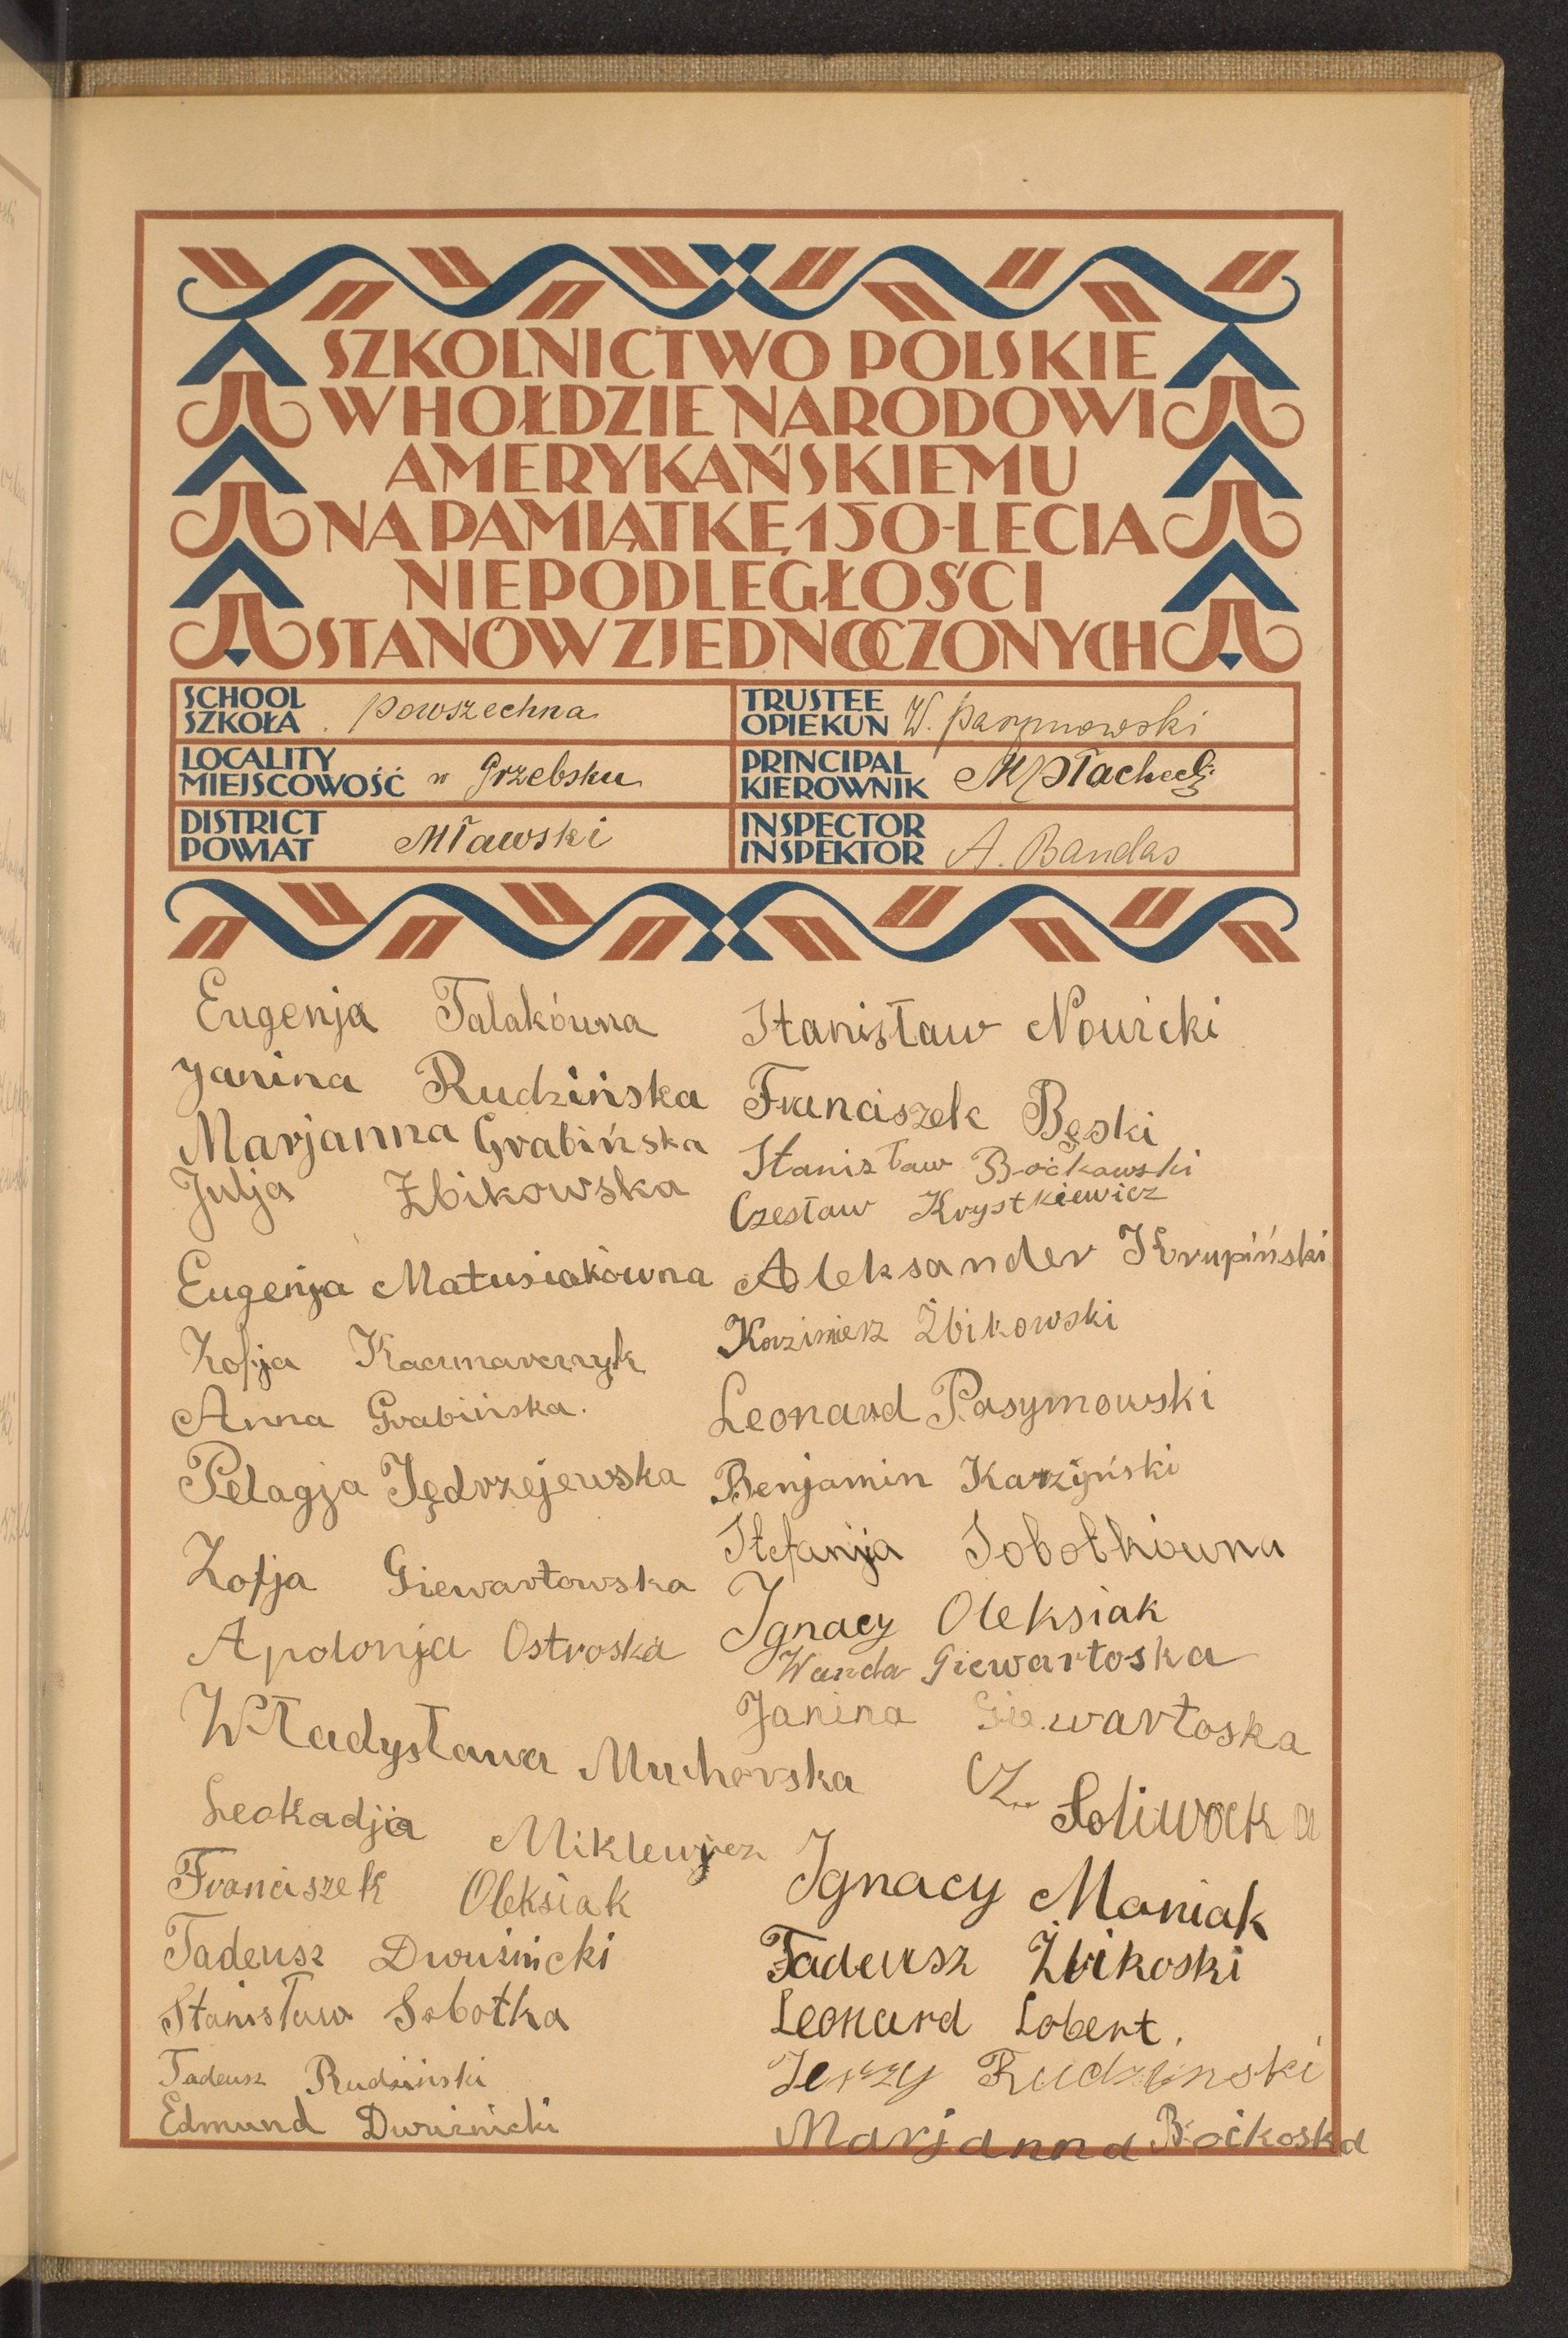 SZKOLNICTWO POLSKIE
W HOŁDZIE NARODOWI
AMERYKAŃSKIEMU
NA PAMIĄTKĘ 150-LECIA
NIEPODLEGŁOŚCI
STANÓW ZJEDNOCZONYCH
SCHOOL
SZKOŁA powszechna
TRUSTEE
OPIEKUN W.
LOCALITY
MIEJSCOWOŚĆ w Grzebsku
PRINCIPAL
KIEROWNIK
DISTRICT
POWIAT Mławski
INSPECTOR
INSPEKTOR A. Bandas
Eugenja Talakówna
Janina Rudzińska
Marjanna Grabińska
Julja Żbikowska
Eugenja Matusiakówna
Zofja Kaczmarczyk
Anna Grabińska.
Pelagja Jędrzejewska
Zofja Giewartowska
Apolonja Ostroska
Władysława Muchowska
Leokadja Miklewicz
Franciszek Oleksiak
Tadeusz Dwuźnicki
Stanisław Sobotka
Tadeusz Rudziński
Edmund Dwuźnicki
Stanisław Nowicki
Franciszek Bęski
Stanisław Boćkowski
Czesław Krystkiewicz
Aleksander Krupiński
Kazimierz Żbikowski
Leonard Pasymowski
Benjamin Karzyński
Stefanja Sobotkówna
Ignacy Oleksiak
Wanda Giewartoska
Janina Giewartoska
Cz. Soliwocka
Ignacy Maniak
Tadeusz Żbikoski
Leonard Lobert.
Jerzy Rudzinski
Marjanna Boćkoska